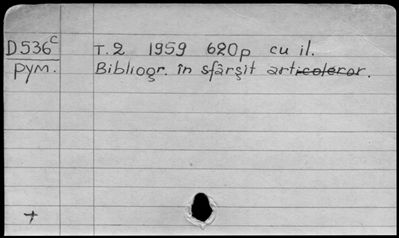 D536c T.2 1959 620p cu il.
рум. Bibliogr. în sfârşit articolelor.
+